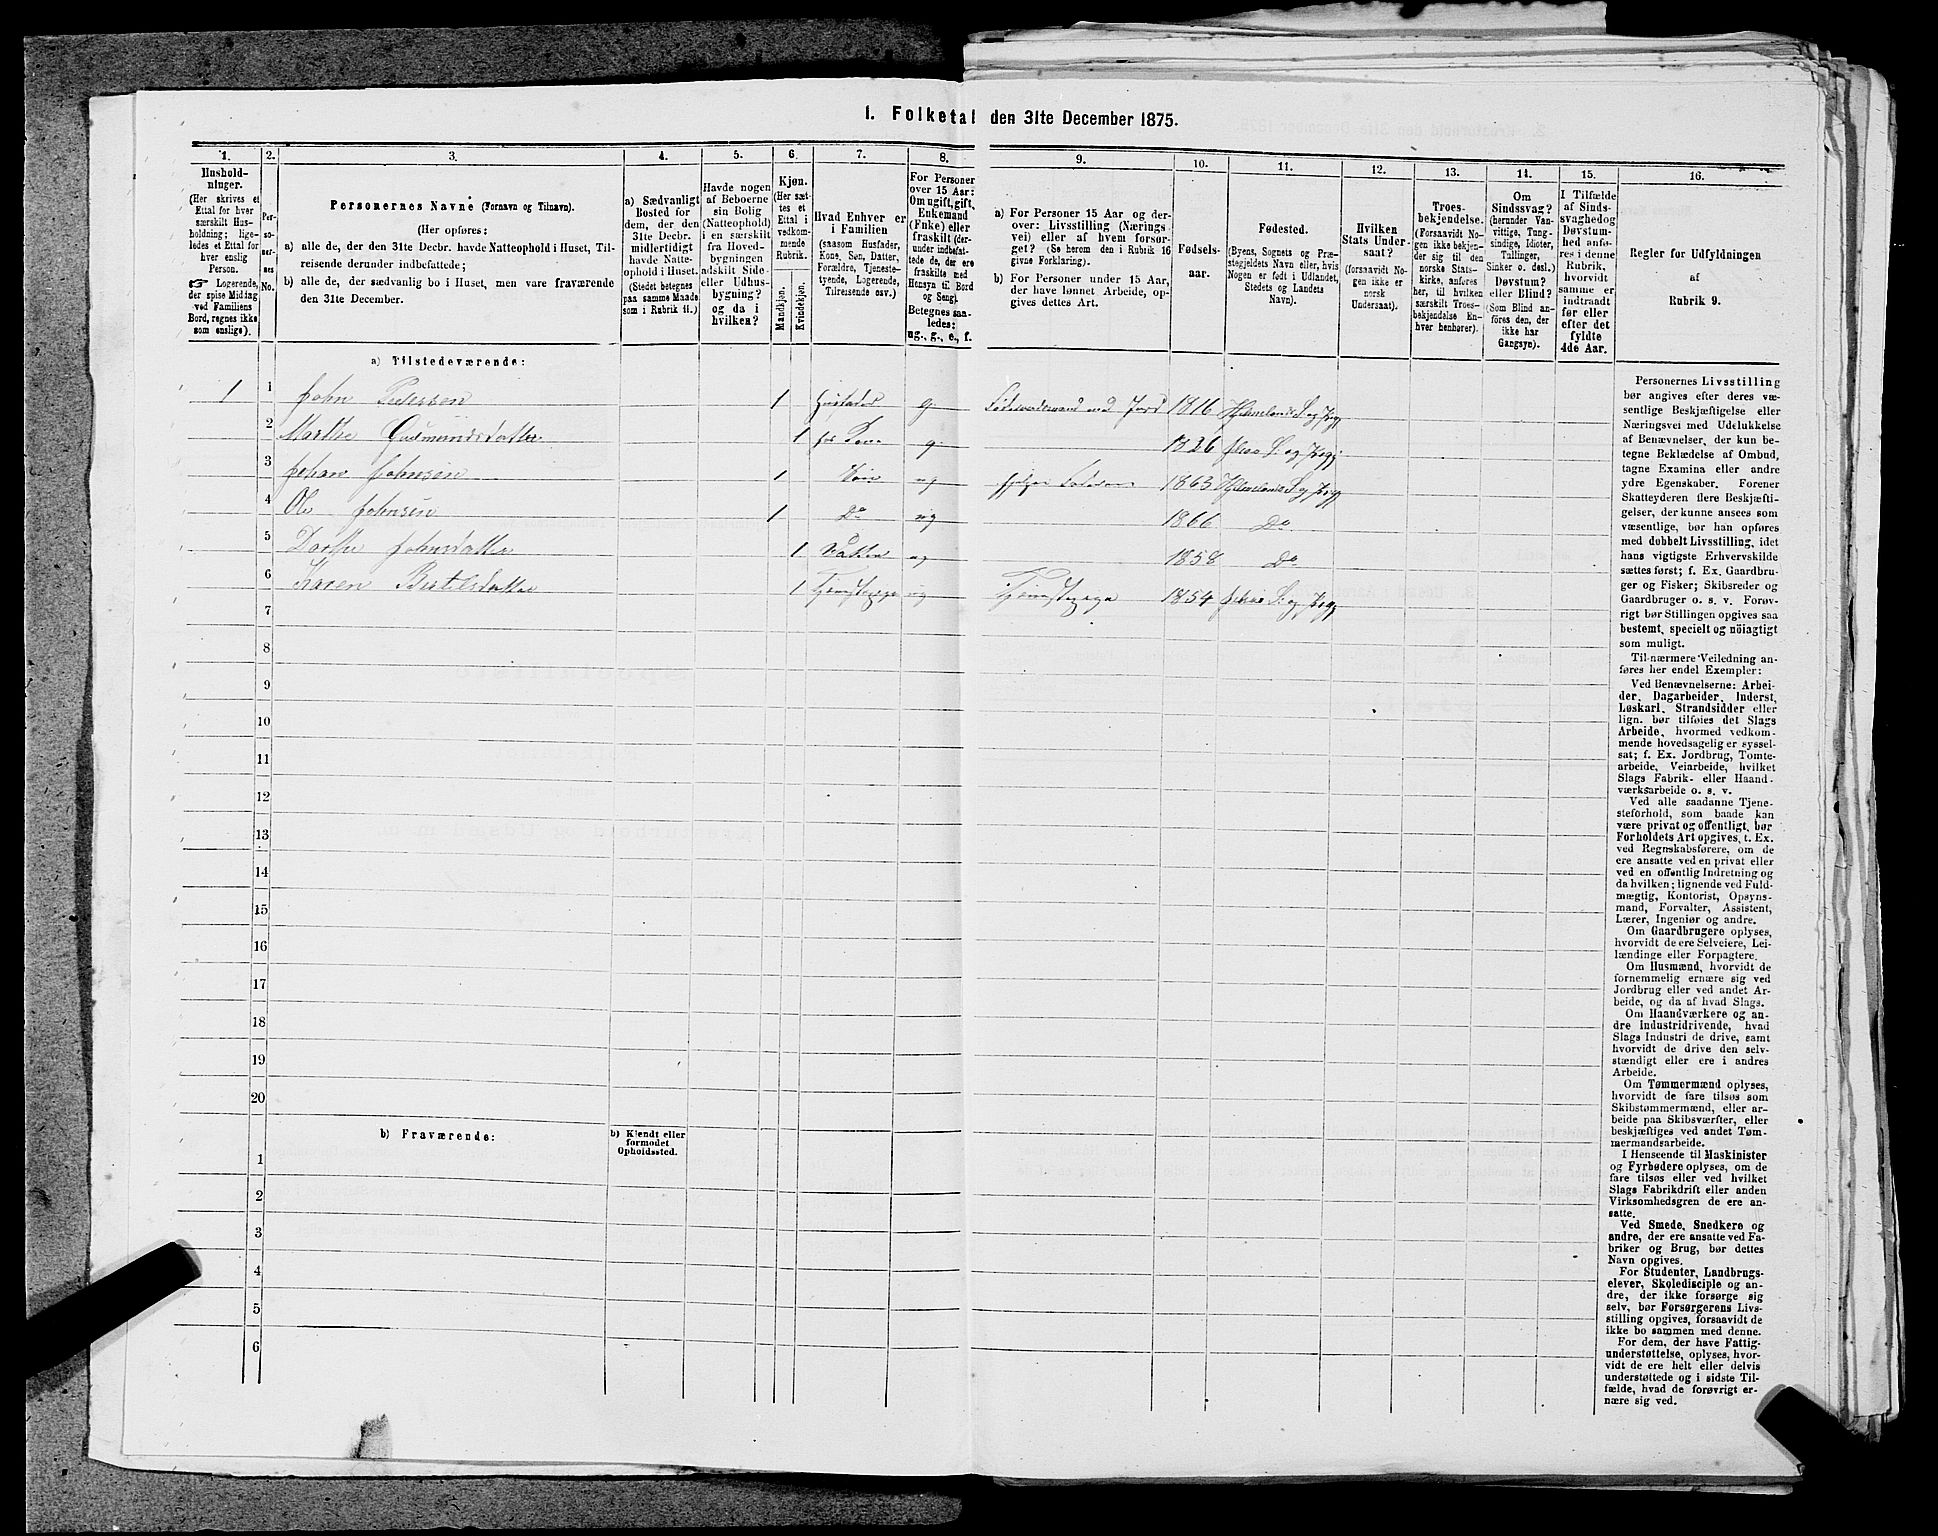 1. Folketal den 31te December 1875.
1.
2.
3.
4.
5.
6.
7.
8.
9.
10.
11.
12.
13.
14.
15.
16.
Hushold-
ninger.
(Her skrives et
Ettal for hver
særskilt Hus-
holdning; lige-
ledes et Ettal for
hver enslig
Person.
☞ Logerende,
der spise Middag
ved Familiens
Bord, regnes ikke
som enslige).
Per-
so-
ner-
nes
No.
Personernes Navne (Fornavn og Tilnavn).
(Her opføres:
a) alle de, der den 31te Decbr. havde Natteophold i Huset, Til-
reisende derunder indbefattede;
b) alle de, der sædvanlig bo i Huset, men vare fraværende
den 31te December.
a) Sædvanligt
Bosted for
dem, der den
31te Decbr.
midlertidigt
havde Natte-
ophold i Huset.
(Stedet betegnes
paa samme Maade
som i Rubrik 11.)
Havde nogen
af Beboerne
sin Bolig
(Natteophold)
i en særskilt
fra Hoved-
bygningen
adskilt Side-
eller Udhus-
bygning?
og da i
hvilken?
Kjøn.
(Her sæt-
tes et
Ettal i
vedkom-
mende
Rubrik.
Mandkjøn.
Kvindekjøn.
Hvad Enhver er
i Familien
(saasom Husfader,
Kone, Søn, Datter,
Forældre, Tjeneste-
tyende, Logerende,
Tilreisende osv.)
For Personer
over 15 Aar:
Om ugift, gift,
Enkemand
(Enke) eller
fraskilt (der-
under indbefat-
tede de, der ere
fraskilte med
Hensyn til Bord
og Seng).
Betegnes saa-
ledes:
ug., g., e., f.
a) For Personer 15 Aar og der-
over: Livsstilling (Nærings-
vei) eller af hvem forsør-
get? (Se herom den i Rubrik 16
givne Forklaring).
b) For Personer under 15 Aar,
der have lønnet Arbeide, op-
gives dettes Art.
Fødsels-
aar.
Fødested.
(Byens, Sognets og Præ-
stegjeldets Navn eller, hvis
Nogen er født i Udlandet,
Stedets og Landets
Navn).
Hvilken
Stats Under-
saat?
(forsaavidt No-
gen ikke er
norsk
Undersaat).
Troes-
bekjendelse.
(Forsaavidt No-
gen ikke bekjen-
der sig til den
norske Stats-
kirke, anføres
her, til hvilken
særskilt Troes-
bekjendelse En-
hver henhører).
Om
Sindssvag?
(herunder Van-
vittige, Tung-
sindige, Idioter,
Tullinger,
Sinker o. desl.)
Døvstum?
eller Blind?
(Som Blind an-
føres den, der
ikke har
Gangsyn).
I Tilfælde
af Sinds-
svaghed og
Døvstum-
hed anfø-
res i denne
Rubrik,
hvorvidt
samme er
indtraadt
før eller
efter det
fyldte
4de Aar.
Regler for Udfyldningen
af
Rubrik 9.
a) Tilstedeværende:
1 1 John Pedersen 1 Husfader g. 1816
2 Marthe Gudmundsdatter 1 g. 1826
3 Johan Johnsen 1 Søn ug 1863
4 Ole Johnsen 1 Do ug 1866 Do
5 Dorthe Johnsdatter 1 Datter ug 1858 Do
6 Karen Bertelsdatter 1 Tjenstepige ug Tjenstepige 1854
7
8
9
10
11
12
13
14
15
16
17
18
19
20
b) Fraværende:
b) Kjendt eller
formodet
Opholdssted.
1
2
3
4
5
6
Personernes Livsstilling
bør angives efter deres væ-
sentlige Beskjæftigelse eller
Næringsvei med Udelukkelse
af Benævnelser, der kun be-
tegne Beklædelse af Ombud,
tagne Examina eller andre
ydre Egenskaber. Forener
Skatteyderen flere Beskjæfti-
gelser, der kunne ansees som
væsentlige, bør han opføres
med dobbelt Livsstilling, idet
hans vigtigste Erhvervskilde
sættes først; f. Ex. Gaardbru-
ger og Fisker; Skibsreder og
Gaardbruger o. s. v. Forøv-
rigt bør Stillingen opgives saa
bestemt, specielt og nöiagtigt
som muligt.
Til nærmere Veiledning an-
føres her endel Exempler:
Ved Benævnelserne: Arbei-
der, Dagarbeider, Inderst,
Løskarl, Strandsidder eller
lign. bør tilføies det Slags
Arbeide, hvormed vedkom-
mende hovedsagelig er syssel-
sat; f. Ex. Jordbrug, Tomte-
arbeide, Veiarbeide, hvilket
Slags Fabrik- eller Haand-
værksarbeide o. s. v.
Ved alle saadanne Tjene-
steforhold, som baade kan
være privat og offentligt, bør
Forholdets Art opgives, t. Ex.
ved Regnskabsførere, om de
ere ansatte ved en privat eller
ved en offentlig Indretning og
da hvilken; lignende ved Fuld-
mægtig, Kontorist, Opsyns-
mand, Forvalter, Assistent,
Lærer, Ingeniør og andre.
Om Gaardbrugere oplyses,
hvorvidt de ere Selveiere, Lei-
lændinge eller Forpagtere.
Om Husmænd, hvorvidt de
fornemmelig ernære sig ved
Jordbrug eller ved andet Ar-
beide, og da af hvad Slags.
Om Haandværkere og an-
dre Industridrivende, hvad
Slags Industri de drive, samt
hvorvidt de drive den selv-
stændigt eller ere i andres
Arbeide.
Om Tømmermænd oplyses,
hvorvidt de fare tilsøs som
Skibstømmermænd, eller ar-
beide paa Skibsværfter, eller
beskjæftiges ved andet Tøm-
mermandsarbeide.
I Henseende til Maskinister
og Fyrbødere oplyses, om de
fare tilsøs eller ved hvilket
Slags Fabrikdrift eller anden
Virksomhedsgren de ere an-
satte.
Ved Smede, Snedkere og
andre, der ere ansatte ved Fa-
briker og Brug, bør dettes
Navn opgives.
For Studenter, Landbrugs-
elever, Skoledisciple og an-
dre, der ikke forsørge sig
selv, bør Forsørgerens Livs-
stilling opgives, forsaavidt de
ikke bo sammen med denne.
For dem, der have Fattig-
understøttelse, oplyses, hvor-
vidt de ere helt eller delvis
understøttede og i sidste Til-
fælde, hvad de forøvrigt er-
nære sig ved.